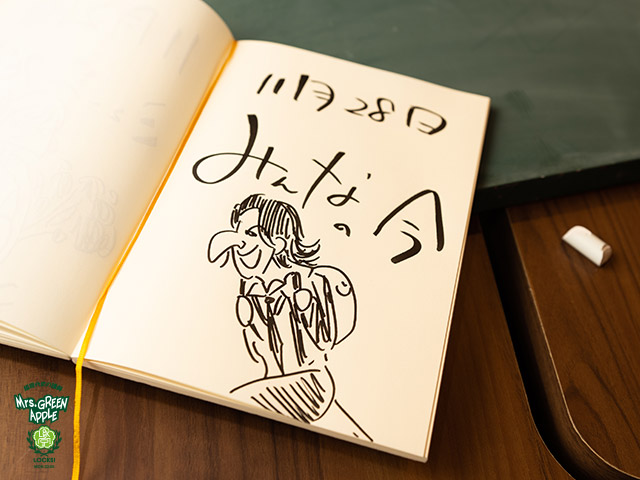 11月28日
みんなの今
Mrs. GREEN
APPLE
LOCKS!